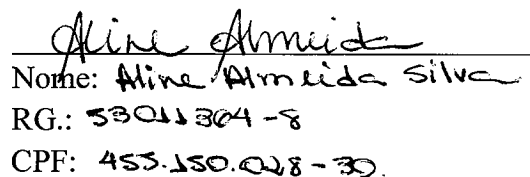 Aline Almeida
Nome: Aline Almeida Silva
RG.: 53011364-8
CPF: 455.150.028-30